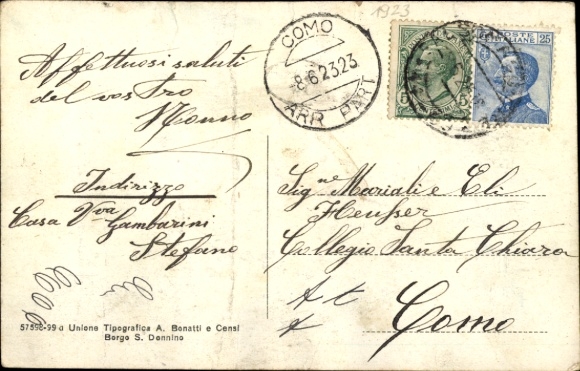 1923
COMO
-8.6 23.23
ARR PART
POSTE
ITALIANE 25
Affettuosi saluti
del vostro
Nonno
Indirizzo
Casa Vva Gambarini
Stefano
Signe Mariali e Eli
Heusser
Collegio Santa Chiara
Como
57598-99 a Unione Tipografica A. Bonatti e Censi
Borgo S. Donnino